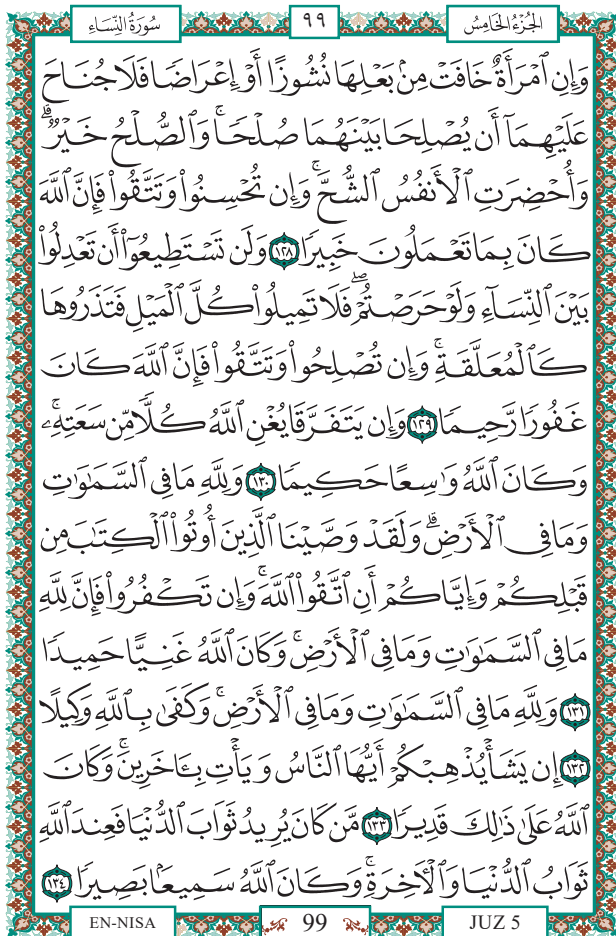 الجُزْءُ الخَامِسُ
٩٩
سُورَةُ النِّسَاءِ
وَإِنِ ٱمْرَأَةٌ خَافَتْ مِنۢ بَعْلِهَا نُشُوزًا أَوْ إِعْرَاضًا فَلَا جُنَاحَ
عَلَيْهِمَآ أَن يُصْلِحَا بَيْنَهُمَا صُلْحًا ۚ وَٱلصُّلْحُ خَيْرٌ ۗ
وَأُحْضِرَتِ ٱلْأَنفُسُ ٱلشُّحَّ ۚ وَإِن تُحْسِنُوا۟ وَتَتَّقُوا۟ فَإِنَّ ٱللَّهَ
كَانَ بِمَا تَعْمَلُونَ خَبِيرًا ١٢٨ وَلَن تَسْتَطِيعُوٓا۟ أَن تَعْدِلُوا۟
بَيْنَ ٱلنِّسَآءِ وَلَوْ حَرَصْتُمْ ۖ فَلَا تَمِيلُوا۟ كُلَّ ٱلْمَيْلِ فَتَذَرُوهَا
كَٱلْمُعَلَّقَةِ ۚ وَإِن تُصْلِحُوا۟ وَتَتَّقُوا۟ فَإِنَّ ٱللَّهَ كَانَ
غَفُورًا رَّحِيمًا ١٢٩ وَإِن يَتَفَرَّقَا يُغْنِ ٱللَّهُ كُلًّا مِّن سَعَتِهِۦ ۚ
وَكَانَ ٱللَّهُ وَٰسِعًا حَكِيمًا ١٣٠ وَلِلَّهِ مَا فِى ٱلسَّمَٰوَٰتِ
وَمَا فِى ٱلْأَرْضِ ۗ وَلَقَدْ وَصَّيْنَا ٱلَّذِينَ أُوتُوا۟ ٱلْكِتَٰبَ مِن
قَبْلِكُمْ وَإِيَّاكُمْ أَنِ ٱتَّقُوا۟ ٱللَّهَ ۚ وَإِن تَكْفُرُوا۟ فَإِنَّ لِلَّهِ
مَا فِى ٱلسَّمَٰوَٰتِ وَمَا فِى ٱلْأَرْضِ ۚ وَكَانَ ٱللَّهُ غَنِيًّا حَمِيدًا
١٣١ وَلِلَّهِ مَا فِى ٱلسَّمَٰوَٰتِ وَمَا فِى ٱلْأَرْضِ ۚ وَكَفَىٰ بِٱللَّهِ وَكِيلًا
١٣٢ إِن يَشَأْ يُذْهِبْكُمْ أَيُّهَا ٱلنَّاسُ وَيَأْتِ بِـَٔاخَرِينَ ۚ وَكَانَ
ٱللَّهُ عَلَىٰ ذَٰلِكَ قَدِيرًا ١٣٣ مَّن كَانَ يُرِيدُ ثَوَابَ ٱلدُّنْيَا فَعِندَ ٱللَّهِ
ثَوَابُ ٱلدُّنْيَا وَٱلْـَٔاخِرَةِ ۚ وَكَانَ ٱللَّهُ سَمِيعًۢا بَصِيرًا ١٣٤
EN-NISA
99
JUZ 5